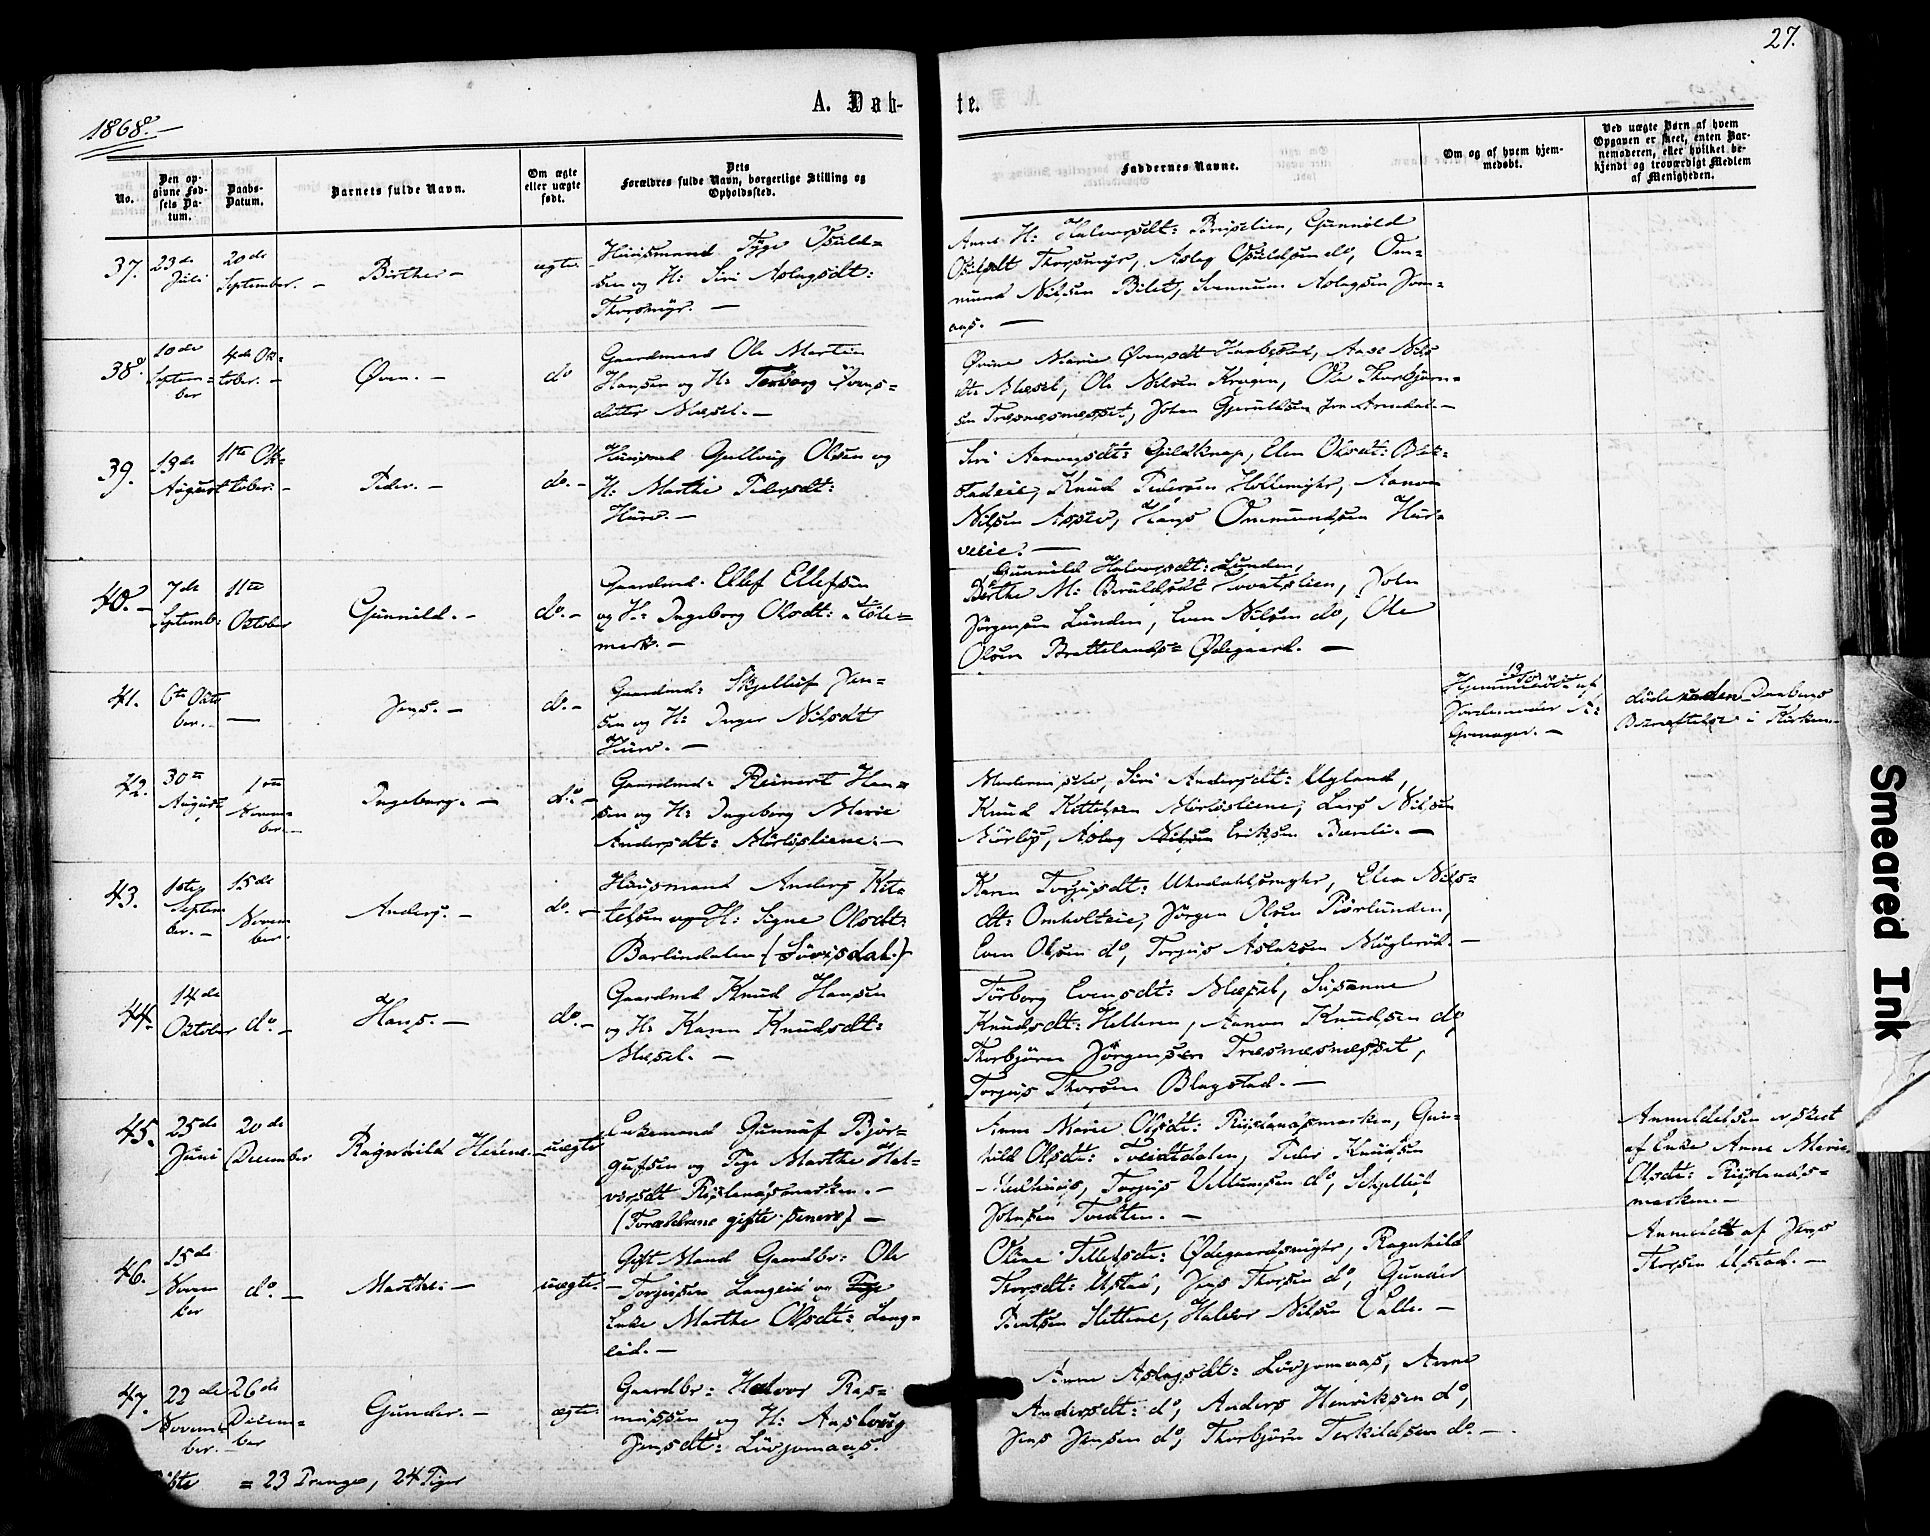 27.
A. Døb-
te.
1868.
No.
Den op-
givne Fød-
sels Da-
tum.
Daabs-
Datum.
Barnets fulde Navn.
Om ægte
eller uægte
født.
Dets
Forældres fulde Navn, borgerlige Stilling og
Opholdssted.
Faddernes Navne.
Om og af hvem hjem-
medøbt.
Ved uægte Børn af hvem
Opgaven er skeet, enten Bar-
nemoderen, eller hvilket be-
kjendt og troværdigt Medlem
af Menigheden.
37.
23de
Juli
20de
September. -
Birthe -
ægte.
Huusmand Tyge Osuld=
sen og H: Siri Aslagsdt:
Thorsmyr. -
Anne H: Halvorsdt: Gunnild
Osulsdt Thorsmyr, Aslag Osuldsen do, Om-
mund Nilsen Bilet, Aslagsen Jom=
aas. -
38.
10de
Septem=
ber
4de Ok-
tober. -
Øven. -
do
Gaardmand Ole Martin
Hansen og H: Torborg Øvens-
datter Mæsel. -
Marie Øvensdt Aase Nils
dt: Mæsel, Ole Nilsen Krogen, Ole Thorbjørn=
sen Træsnæsnæsset, John Gjeruldsen fra Arendal. -
39.
13de
August
11te Ok-
tober. -
Peder. -
do. -
Huusmd Gullvig Olsen og
H: Marthe Pedersdt:
Huuv. -
Siri Aanonsdt: Guldknap, Elen Olsdt:
Knud Pedersen Hollemyhr, Aanon
Nilsen Hans Ommundsen Huu-
veie. -
40. -
7de
Septemb:
11te
Oktober
Gunnild. -
do. -
Gaardmd. Ellef Ellefsen
og H: Ingeborg Olsdt: Støle=
mark. -
Gunnild Halvorsdt: Lunden,
Birthe M: Beruldsdt John
Jørgensen Lunden, Even Nilsen do, Ole
Olsen Brattelands= Ødegaard. -
41.
6te Okto
ber. -
-
Jens. -
do. -
Gaardmd: Skjelluf Jen-
sen og H: Inger Nilsdt
Huuv. -
Hjemmedøbt af
Jordemoder
døde uden Daabens
Bekræftelse i Kirken. -
42.
30te
August
1ste
Novem-
ber. -
Ingeborg. -
do. -
Gaardmd: Reinert Han=
sen og H: Ingeborg Marie
Andersdt: Mørløsliene. -
Siri Andersdt: Ugland,
Knud Kittelsen Mørløsliene, Lars Nilsen
Mørløs, Aslag Nilsen Eriksen -
43.
1ste
Septem
ber. -
15de
Novem
ber.
Anders. -
do. -
Huusmand Anders Kit=
telsen og H: Signe Olsdt:
Barlindalen
Karen Torjusdt: Elen Nils=
dt: Omholteie, Jørgen Olsen Piørlunden,
Even Olsen do, Torjus Aslaksen -
44.
14de
Oktober
do. -
Hans. -
do. -
Gaardmd Knud Hansen
og H: Karen Knudsdt:
Mæsel. -
Torborg Evensdt: Mæsel, Susanne
Knudsdt: Helleren, Aanon Knudsen do,
Thorbjørn Jørgensen Træsnæsnæsset,
Torjus Thorsen Blagstad. -
45.
25de
Juni
20de
December
Ragnhild Helene. -
uægte
Enkemand Gunnuf Bjør-
gufsen og Pige Marthe Hal-
vorsdt Rislandsmarken. -
(Forældrene gifte senere) -
Anne Marie Olsdt: Rislandsmarken, Gun-
hild Olsdt: Tveidtdalen, Peder Knudsen
Torjus Vellumsen do, Schjelluf
Johnsen Tvedten. -
Anmeldelsen er skeet
af Enke Anne Marie
Olsdt: Rislands-
marken. -
46.
15de
Novem
ber
do. -
Marthe. -
uægte.
Gift Mand Gaardbr: Ole
Torjusen Langeid og Pige
Enke Marthe Olsdt: Lang=
eid. -
Oline Tellefsdt: Ødegaardsmyhr, Ragnhild
Thorsdt: Ustad, Jens Thorsen do, Gunder
Bentsen Slettene, Halvor Nilsen Valle. -
Anmeldt af Jens
Thorsen Ustad. -
47.
22de
Novem
ber. -
26de
Decem=
ber
Gunder. -
ægte.
Gaardbr: Halvor Ras=
mussen og H: Aaslaug
Jensdt: Løvjomaas.
Anne Aslagsdt: Løvjomaas, Anne
Andersdt: do, Anders Henriksen do,
Jens Jensen do, Thorbjørn Terkildsen do. -
= 23 Drenge, 24 Piger
Smeared Ink